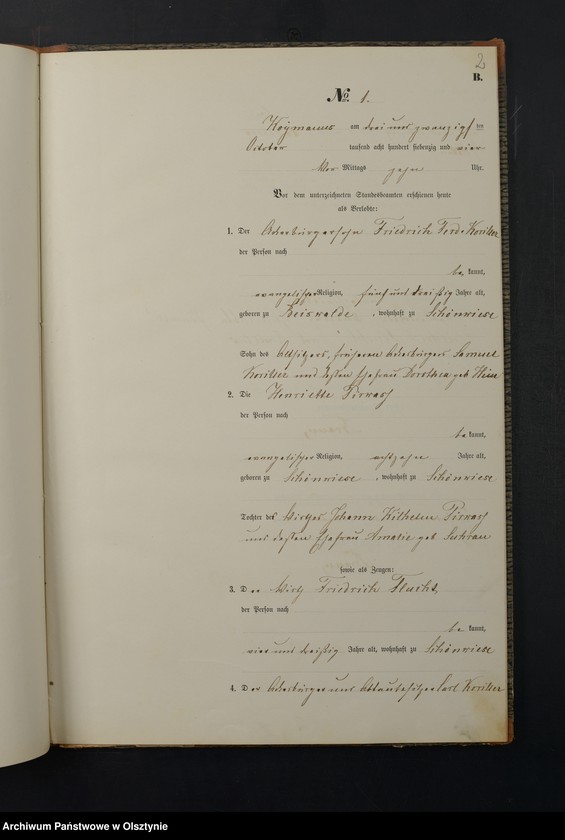 2
B.
No. 1.
am drei und zwanzigsten
October tausend acht hundert siebenzig und vier
Mittags zehn Uhr.
Vor dem unterzeichneten Standesbeamten erschienen heute
als Verlobte:
1. Der Ackerbürgersohn Friedrich Ferd.
der Person nach
be kannt,
evangelischer Religion, fünf und dreißig Jahre alt,
geboren zu , wohnhaft zu Schönwiese
Sohn des Altsitzers, früheren Ackerbürgers Samuel
und dessen Ehefrau Dorothea geb
2. Die Henriette
der Person nach
be kannt,
evangelischer Religion, achtzehn Jahre alt,
geboren zu Schönwiese , wohnhaft zu Schönwiese
Tochter des Wirths Johann Wilhelm
und dessen Ehefrau Amalie geb
sowie als Zeugen:
3. Der Wirth Friedrich
der Person nach
be kannt,
vier und dreißig Jahre alt, wohnhaft zu Schönwiese
4. Der Ackerbürger und Carl
Archiwum Państwowe w Olsztynie